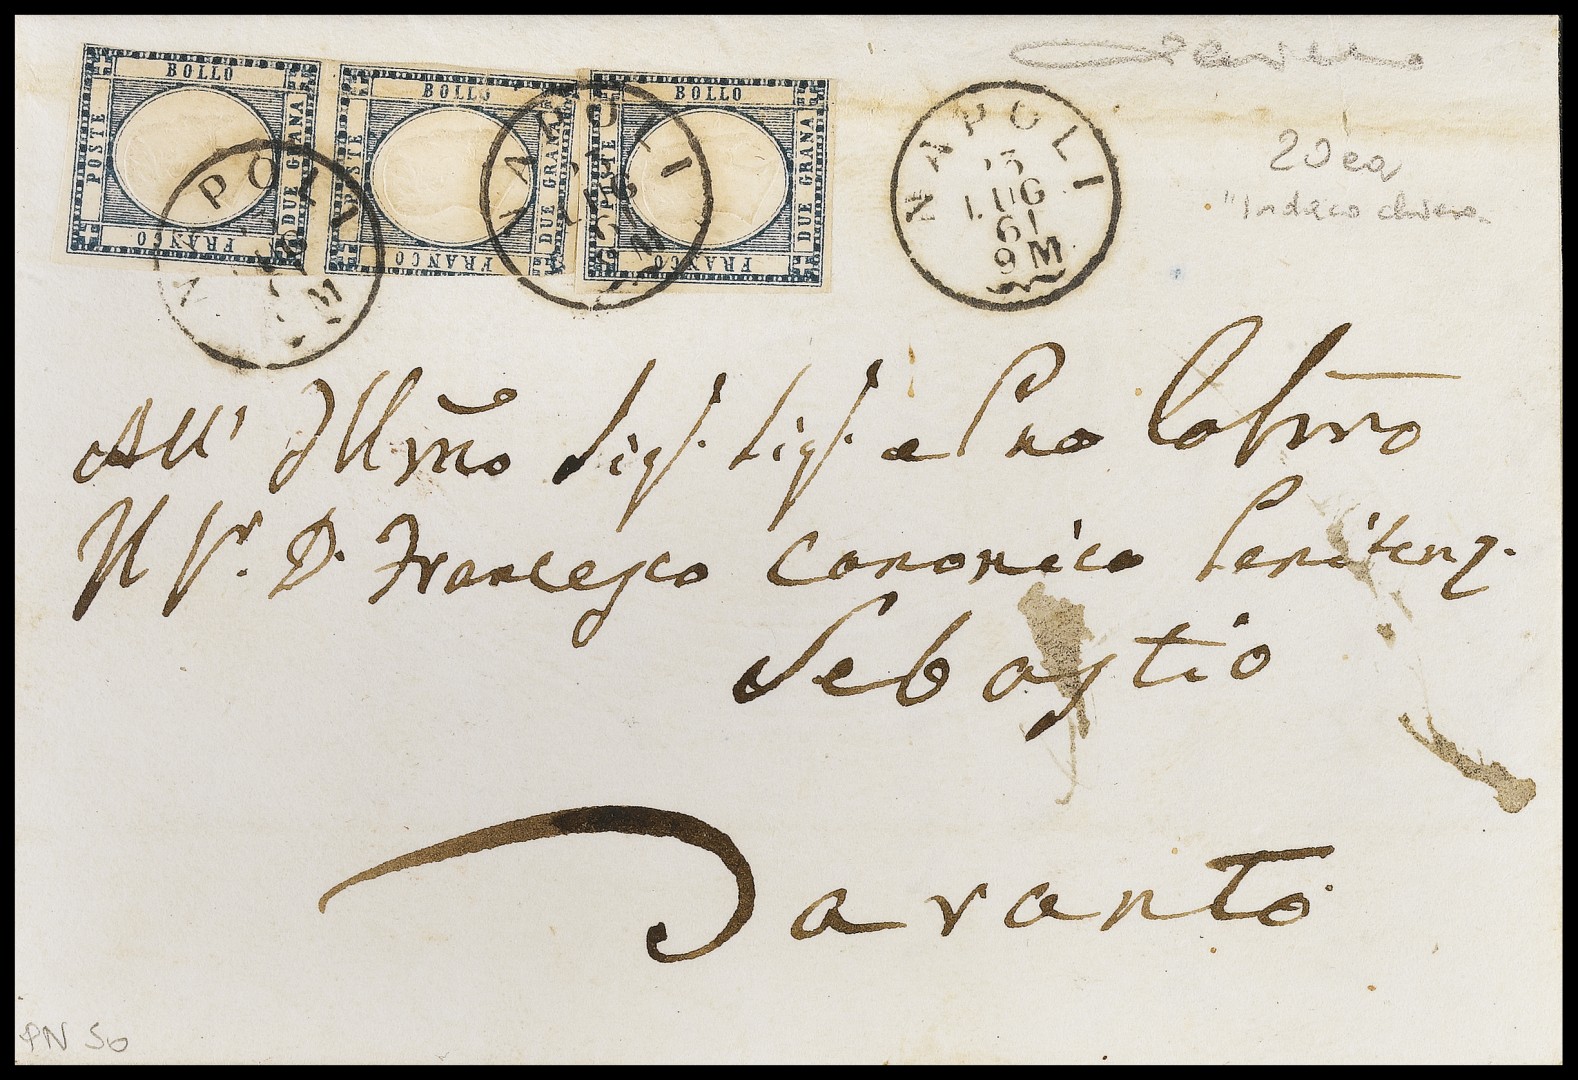 BOLLO
POSTE
DUE GRANA
FRANCO
BOLLO
POSTE
DUE GRANA
FRANCO
BOLLO
POSTE
DUE GRANA
FRANCO
NAPOLI
NAPOLI
LUG
NAPOLI
LUG
61
9 M
20ca
"Indaco chiaro
All' Illmo Sigr. Sigr. e Pno Colmo
Il Sr. D. Francesco Canonico Penitenz.
Sebastio
Taranto
PN 50